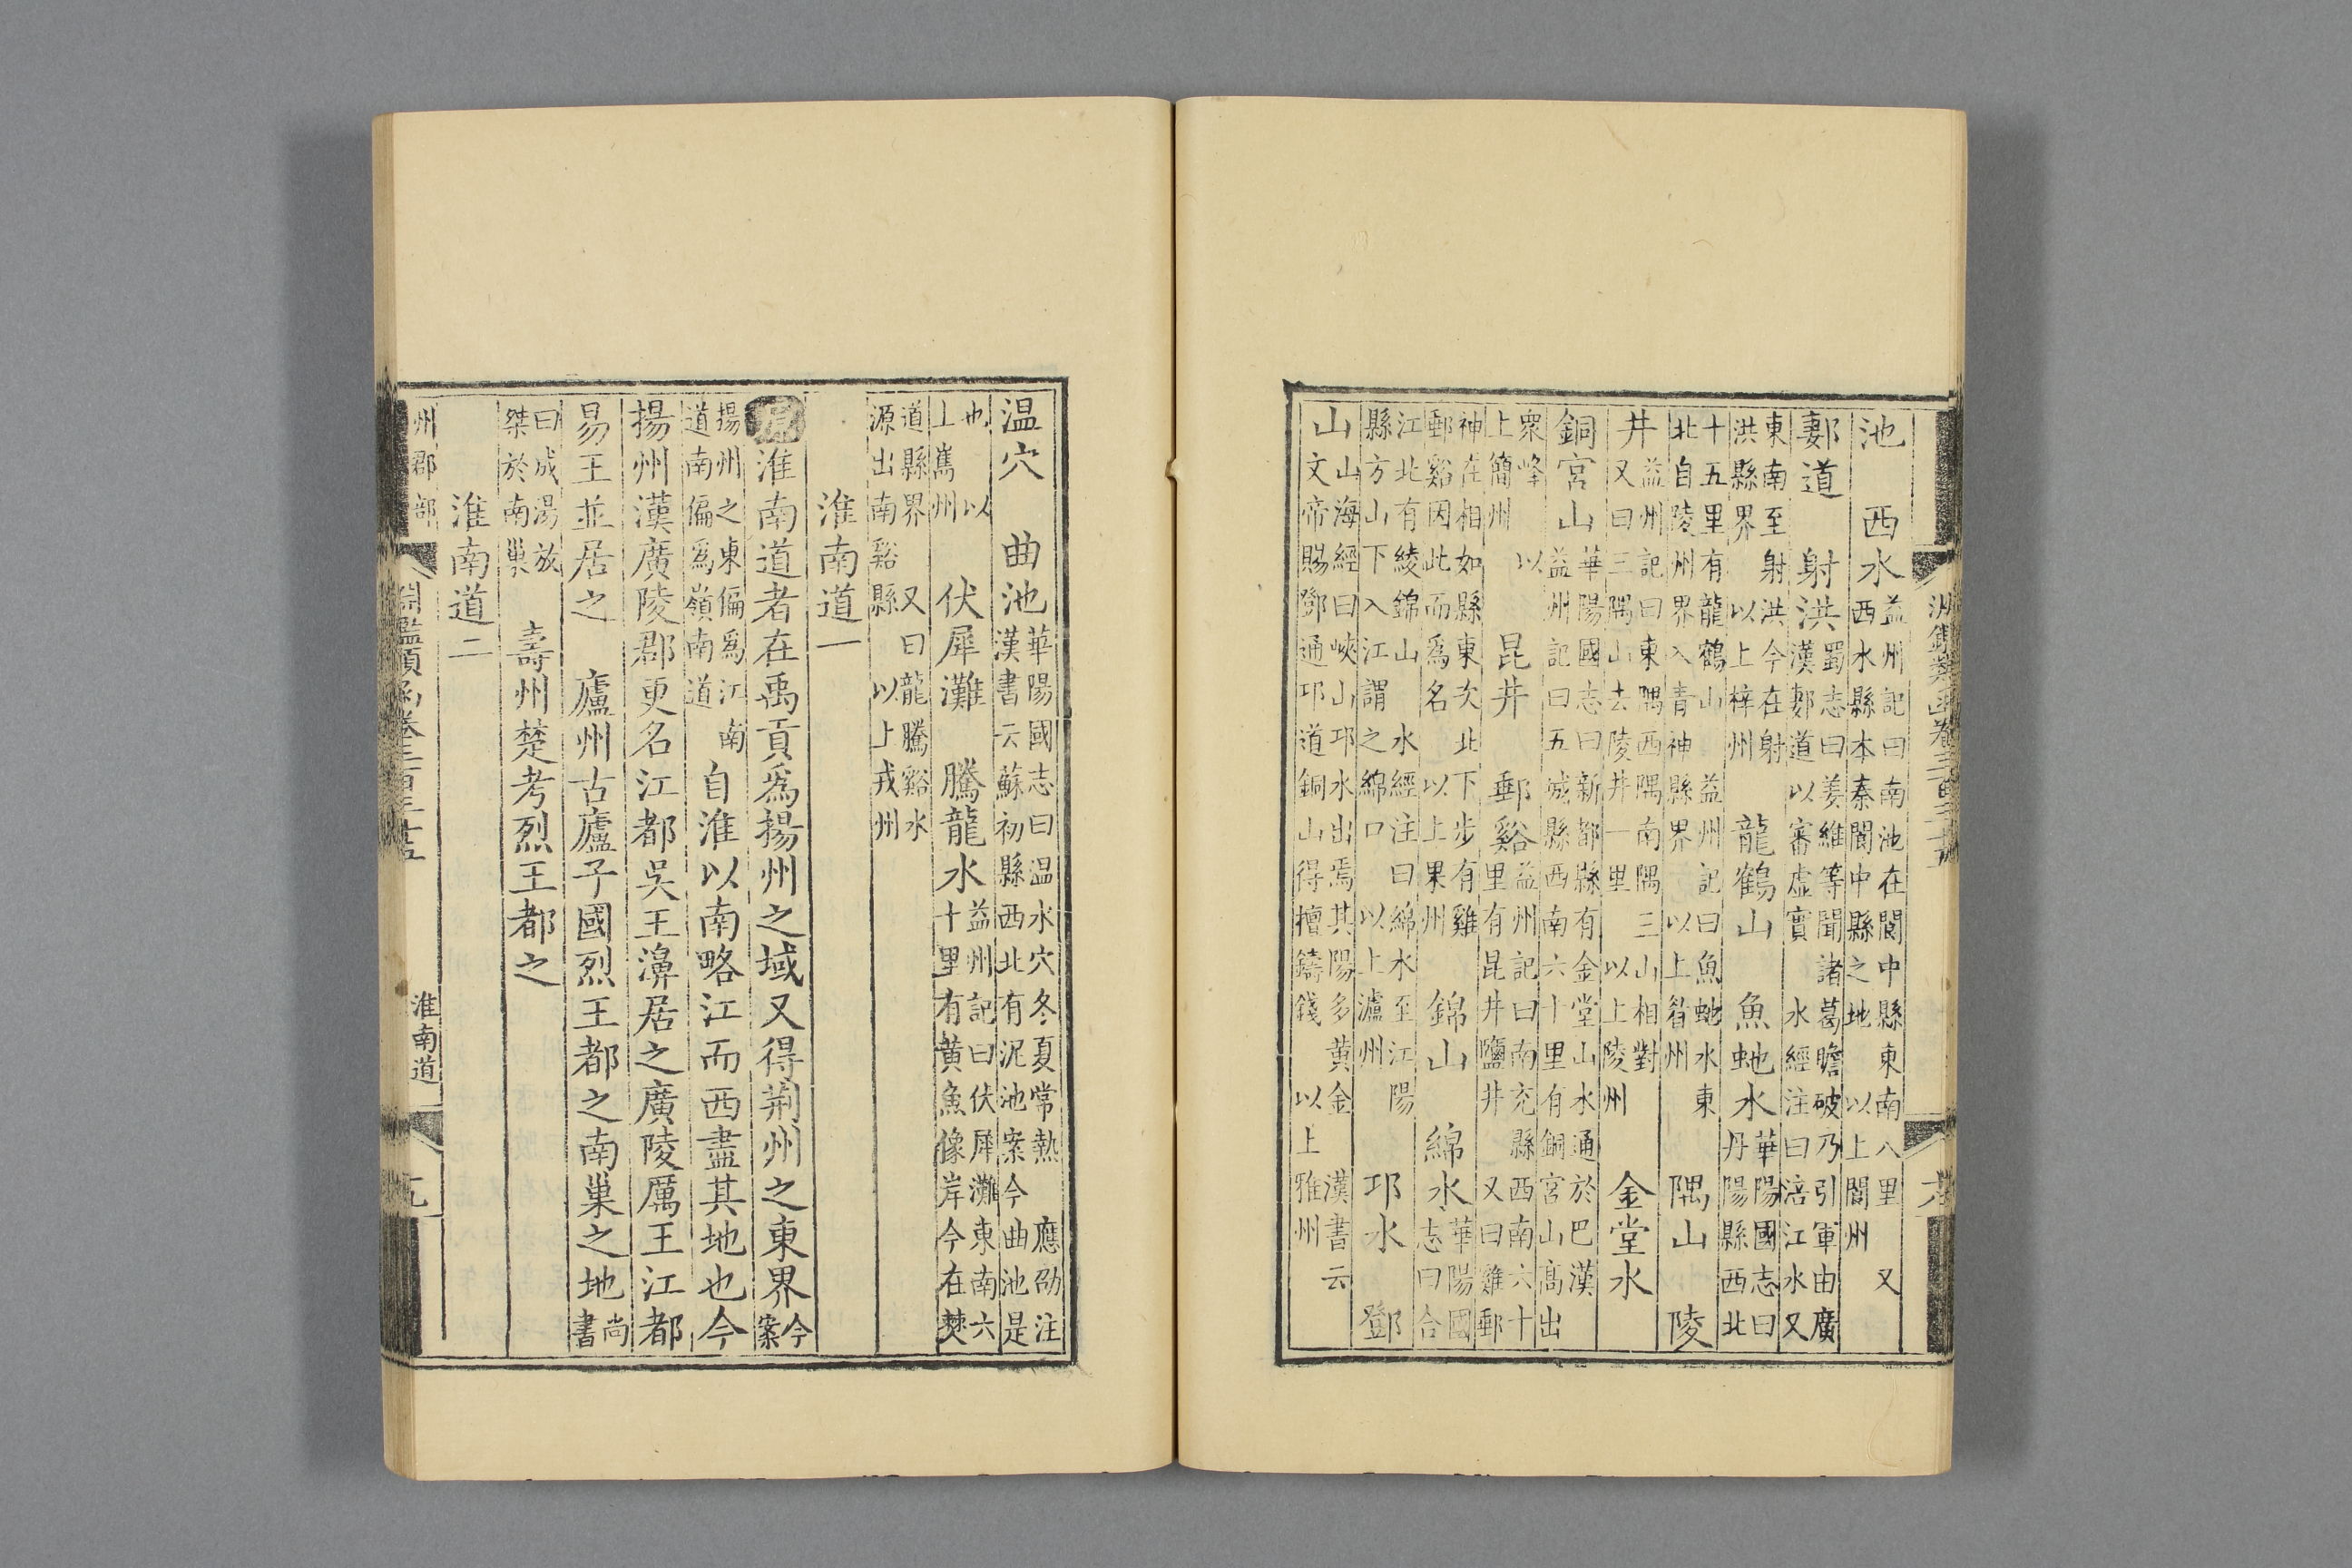 池　西水益州記曰南池在閬中縣東南八里　又西水縣本秦閬中縣之地　以上閬州
郪道　射洪蜀志曰姜維等聞諸葛瞻破乃引軍由廣漢郪道以審虛實　水經注曰涪江水又
東南至射洪今在射洪縣界　以上梓州　龍鶴山　魚虵水華陽國志曰丹陽縣西北
十五里有龍鶴山　益州記曰魚虵水東北自陵州界入青神縣界　以上眉州　隅山　陵
井益州記曰東隅西隅南隅三山相對又曰三隅山去陵井一里　以上陵州　金堂水
銅宮山華陽國志曰新都縣有金堂山水通於巴漢益州記曰五城縣西南六十里有銅宮山高出
衆峰　以上簡州　昆井　郵谿益州記曰南充縣西南六十里有昆井鹽井　又曰雞郵
神在相如縣東次北下步有雞郵谿因此而爲名　以上果州　錦山　綿水華陽國志曰合
江北有綾錦山　水經注曰綿水至江陽縣方山下入江謂之綿口　以上瀘州　邛水　鄧
山山海經曰峽山邛水出焉其陽多黄金　漢書云文帝賜鄧通邛道銅山得擅鑄錢　以上雅州
温穴　曲池華陽國志曰温水穴冬夏常熱　應劭注漢書云蘇初縣西北有泥池案今曲池是
也　以上嶲州　伏犀灘　騰龍水益州記曰伏犀灘東南六十里有黄魚像岸今在僰
道縣界　又曰龍騰谿水源出南谿縣　以上戎州
淮南道一
原淮南道者在禹貢爲揚州之域又得荆州之東界今案
揚州之東偏爲江南道南偏爲嶺南道　自淮以南略江而西盡其地也今
揚州漢廣陵郡更名江都吳王濞居之廣陵厲王江都
易王並居之　廬州古廬子國烈王都之南巢之地尚書
曰成湯放桀於南巢　壽州楚考烈王都之
淮南道二
州郡部　淵鑑類函卷三百三十五　淮南道　九